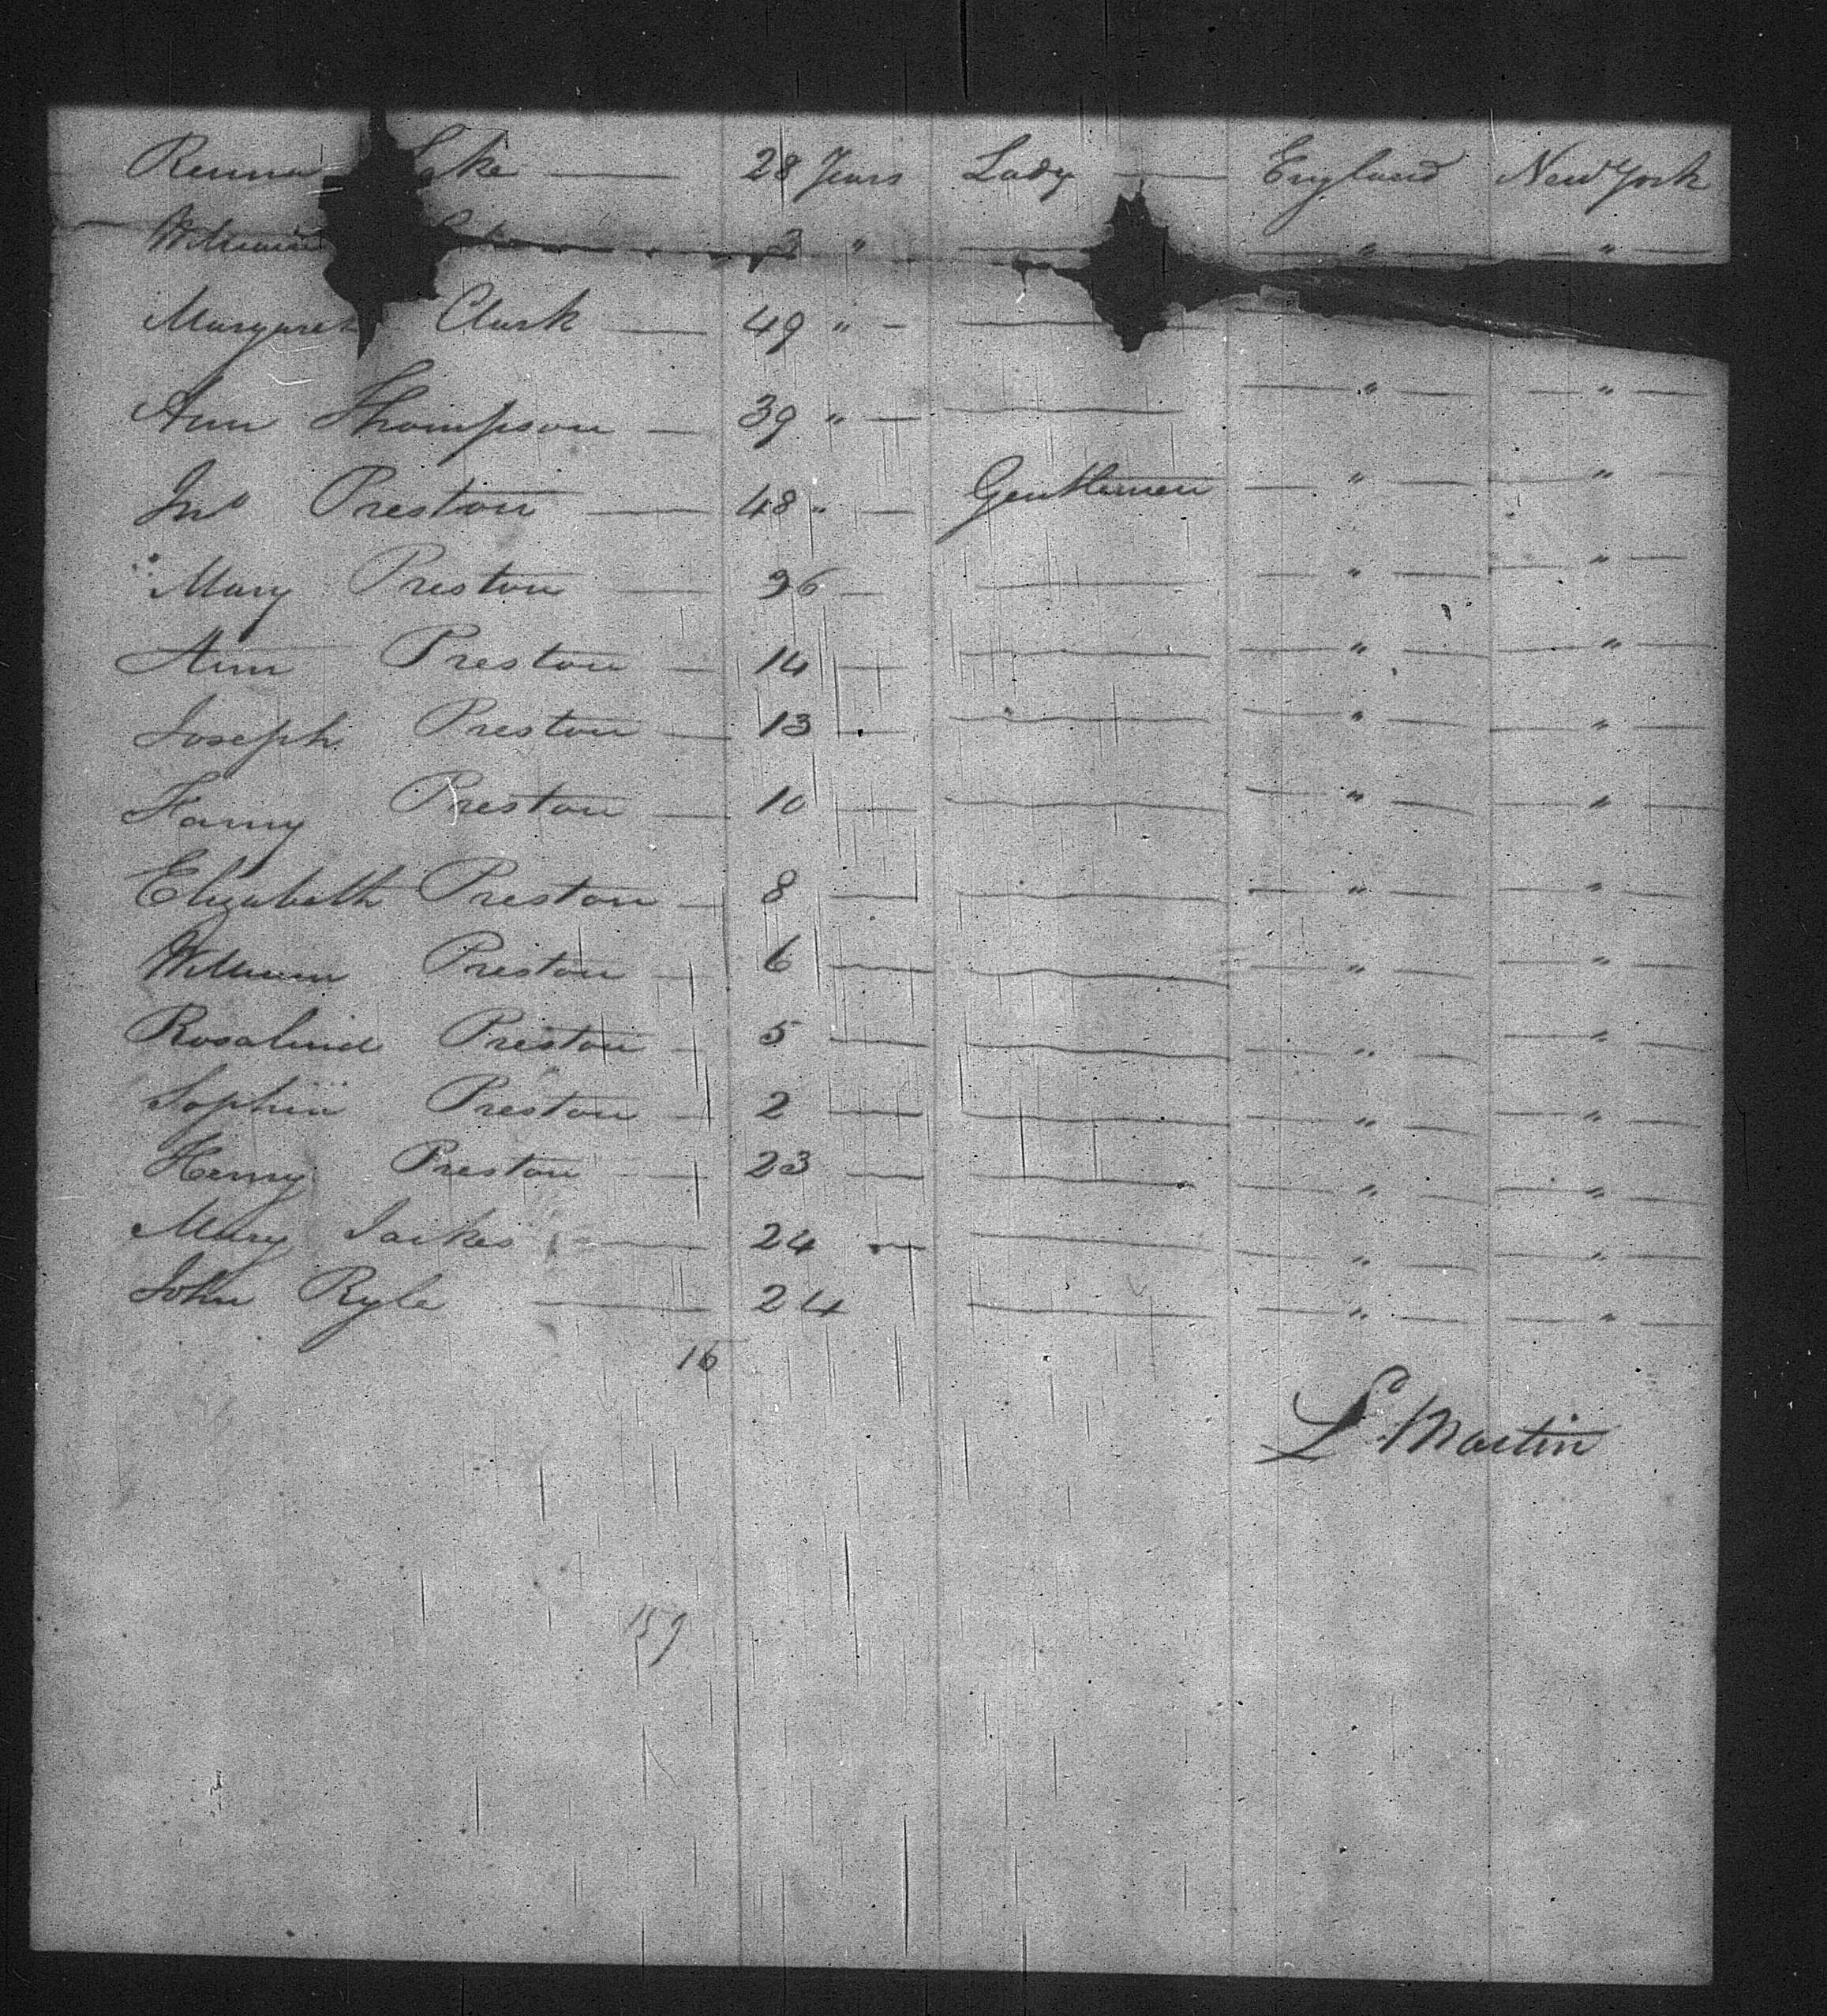 Lake — 28 Years Lady — England New York
3 " — — " — — " —
Margaret Clark — 49 " — —
Ann Thompson — 39 " — — — " — — " —
Jno Preston — 48 " — Gentlemen — " — — " —
Mary Preston — 36 — — — " — — " —
Ann Preston — 14 — — — " — — " —
Joseph Preston — 13 — — — " — — " —
Fanny Preston — 10 — — — " — — " —
Elizabeth Preston — 8 — — — " — — " —
William Preston — 6 — — — " — — " —
Rosalind Preston — 5 — — — " — — " —
Sophia Preston — 2 — — — " — — " —
Henry Preston — 23 — — — " — — " —
Mary — 24 — — — " — — " —
John Ryle — 24 — — " — — " —
16
L Martin
159